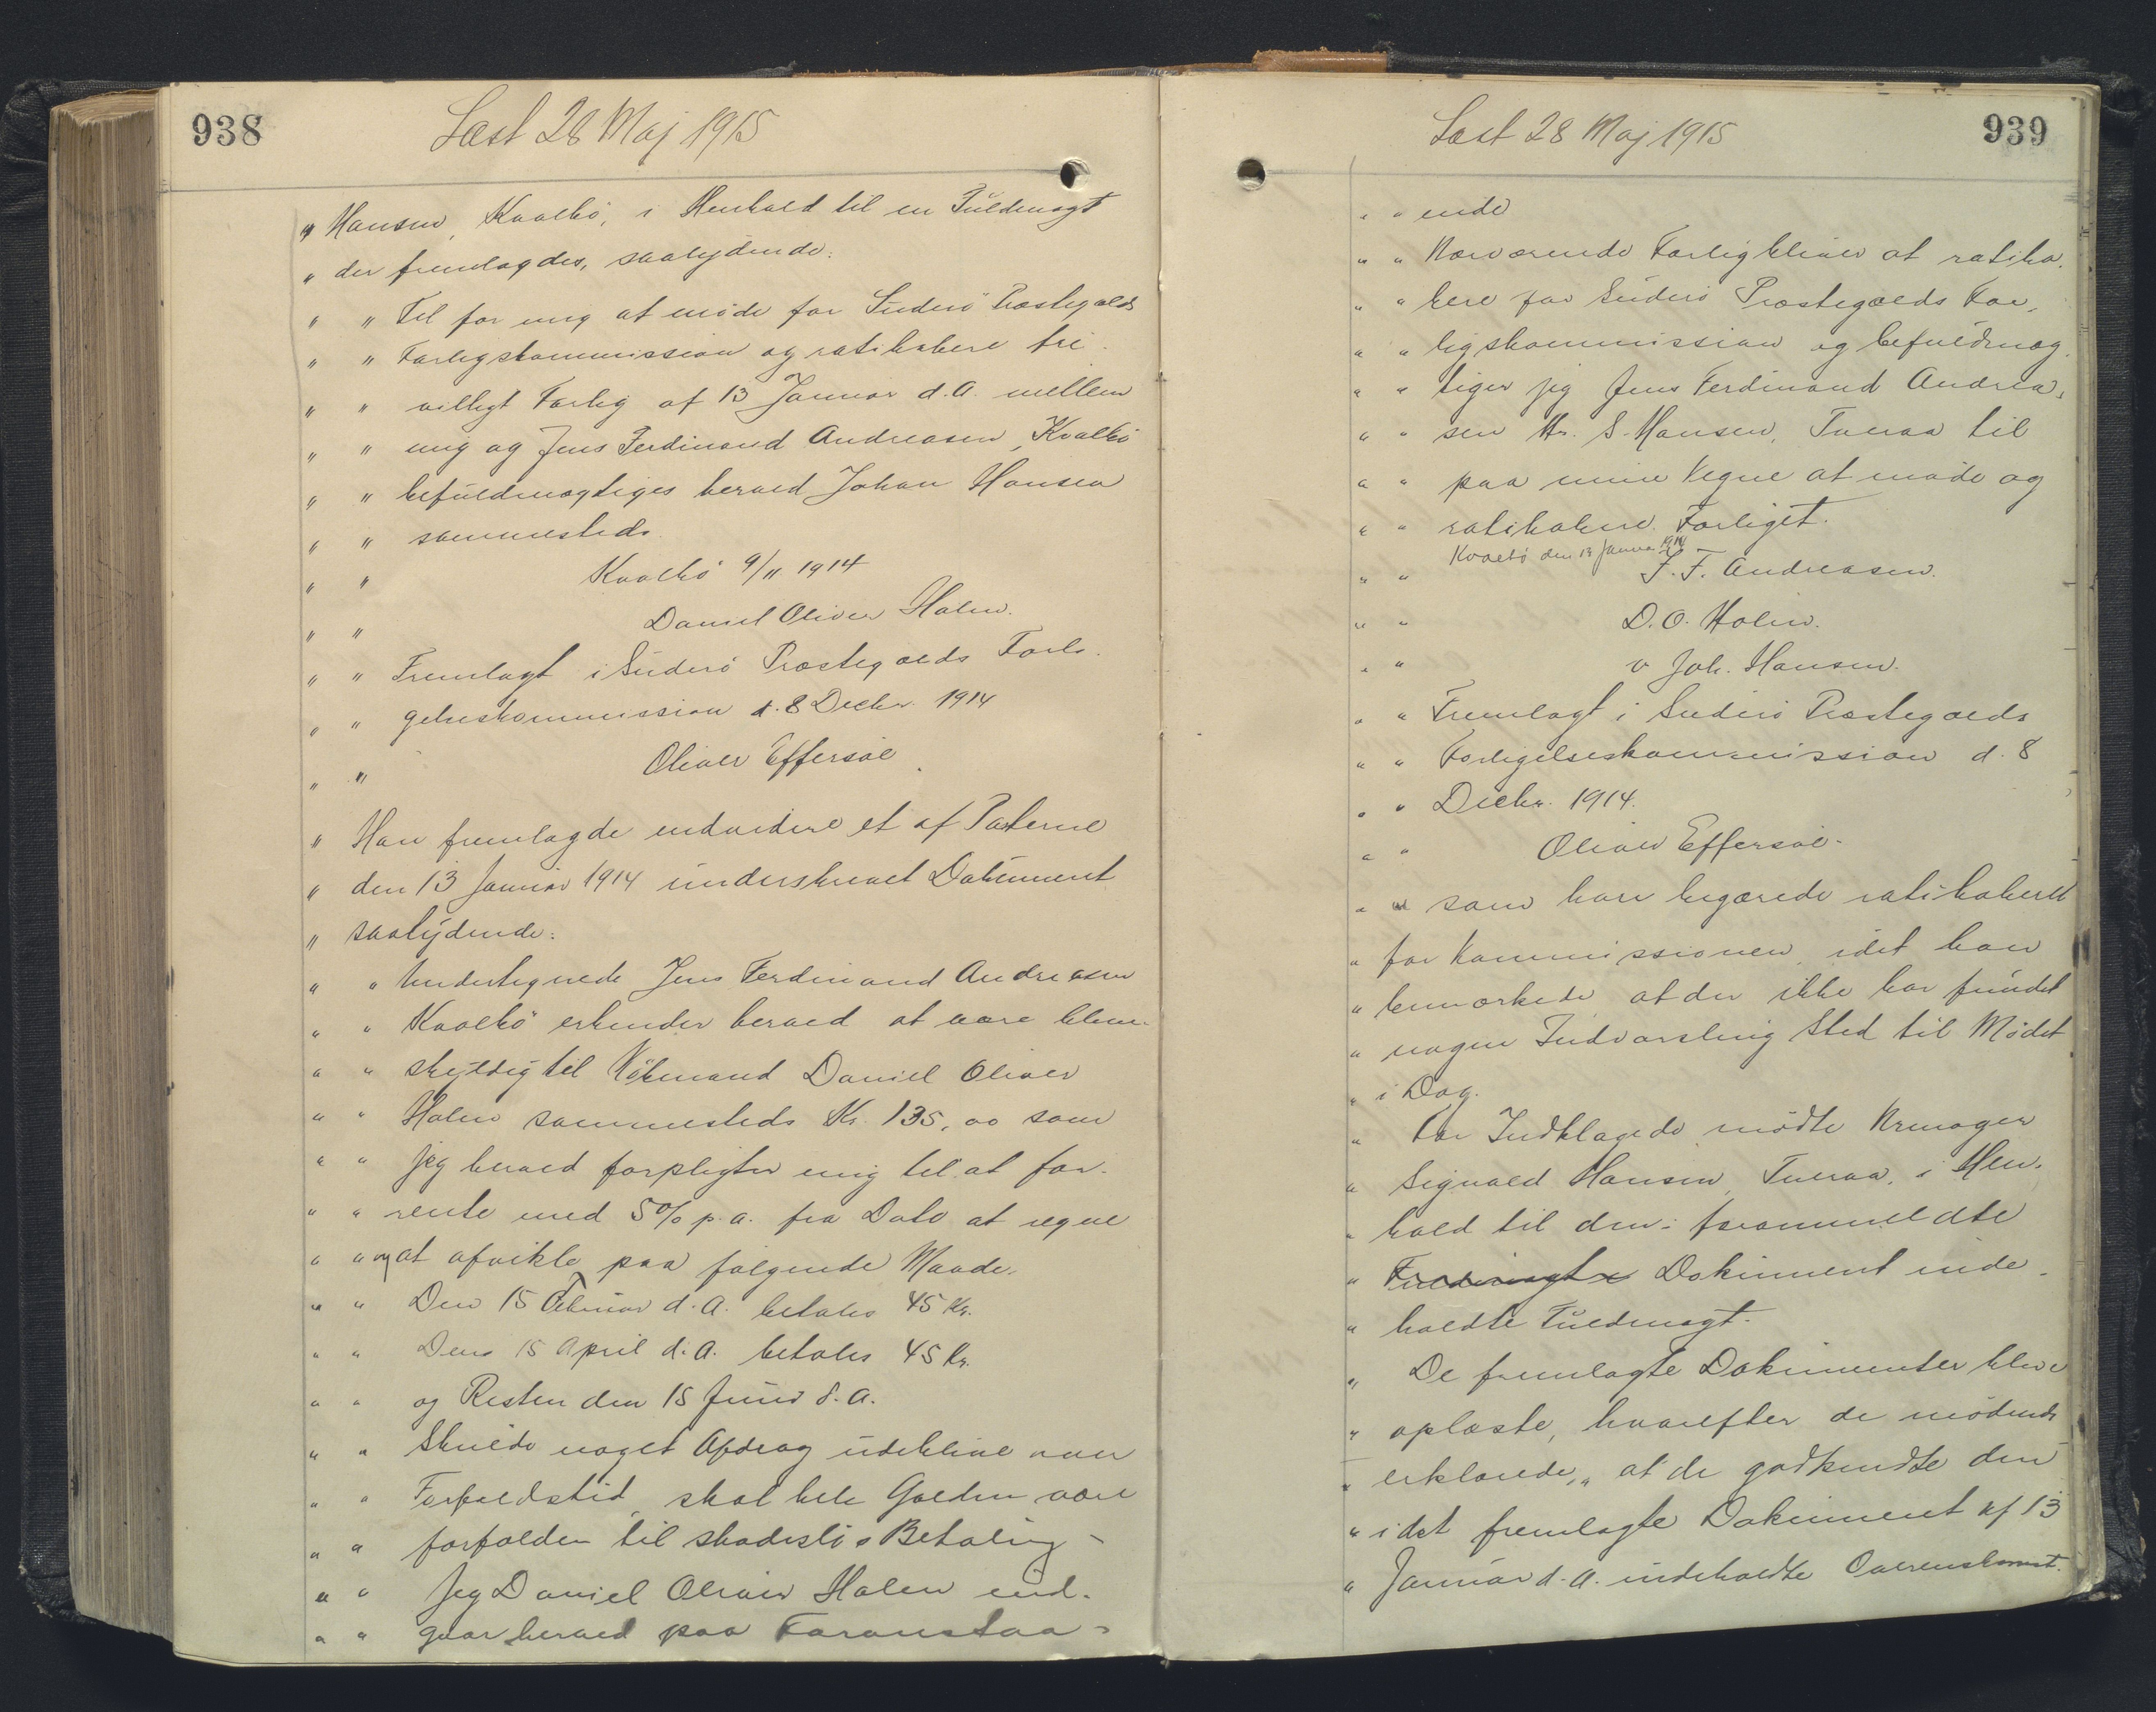 938
Læst 28 Maj 1915
" Hansen, Kvalbø, i Henhold til en Fuldmagt
" der fremlagdes, saalydende:
" " Til for mig at møde for Suderø Præstegjelds
" " Forligskommission og ratihabere fri-
" " villigt Forlig af 13 Januar d.A. mellem
" " mig og Jens Ferdinand Andreasen, Kvalbø
" " befuldmægtiges herved Johan Hansen
" " sammesteds.
" " Kvalbø 9/11 1914
" " Daniel Oliver Holm.
" " Fremlagt i Suderø Præstegælds Forli-
" " gelseskommission d. 8 Decbr. 1914
" " Oliver Effersøe
" Han fremlagde endvidere et af Parterne
" den 13 Januar 1914 underskrevet Dokument
" saalydende:
" " Undertegnede Jens Ferdinand Andreasen
" " Kvalbø erkender herved at være bleven
" " skyldig til Købmand Daniel Oliver
" " Holm sammesteds Kr. 135,00 som
" " jeg herved forpligter mig til at for-
" " rente med 5% p.a. fra Dato at regne
" " og at afvikle paa følgende Maade.
" " Den 15 Februar d.A. betales 45 Kr.
" " Den 15 April d.A. betales 45 Kr.
" " og Resten den 15 Juni d.A.
" " Skulde noget Afdrag udeblive over
" " Forfaldstid, skal hele Gælden være
" " forfalden til skadesløs Betaling-
" " Jeg Daniel Oliver Holm ind-
" " gaar herved paa Foranstaa-
939
Læst 28 Maj 1915
" " ende
" " Nærværende Forlig bliver at ratiha-
" " bere for Suderø Præstegælds For-
" " ligskommission og befuldmæg-
" " tiger jeg Jens Ferdinand Andrea-
" " sen Hr. S. Hansen, Tveraa til
" " paa mine Vegne at møde og
" " ratihabere Forliget.
Kvalbø den 13 Januar 1914
" " J. F. Andreasen.
" " D. O. Holm.
" " v Joh. Hansen.
" " Fremlagt i Suderø Præstegælds
" " Forligelseskommission d. 8
" " Decbr. 1914.
" " Oliver Effersøe.
" " som han begærede ratihaberet
" for Kommissionen, idet han
" bemærkede at der ikke har fundet
" nogen Indvarsling Sted til Mødet
" i Dag.
" For Indklagede mødte Urmager
" Sigvald Hansen, Tveraa, i Hen-
" hold til den i foranmeldte
" Fuldmagt Dokument inde-
" holdte Fuldmagt.
" De fremlagte Dokumenter blev
" oplæste, hvorefter de mødende
" erklærede, at de godkendte den
" i det fremlagte Dokument af 13
" Januar d.A. indeholdte Overenskomst.